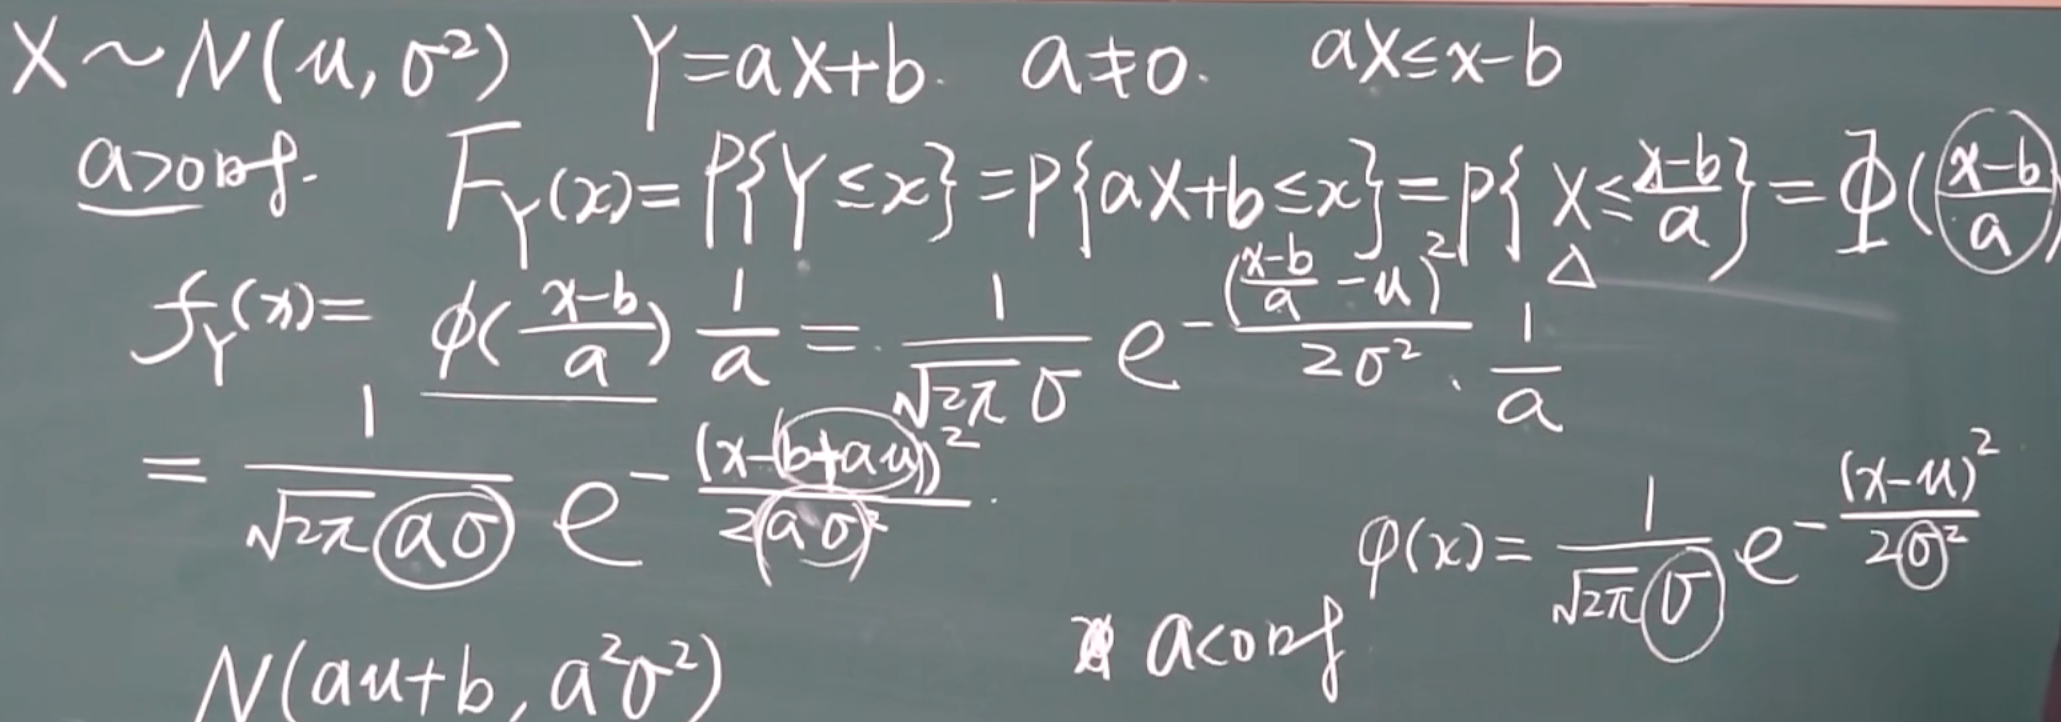 X ~ N(μ, σ²) Y=aX+b. a≠0. aX≤x-b
a>0时. F_Y(x)=P{Y≤x}=P{aX+b≤x}=P{X≤(x-b)/a}=Φ((x-b)/a)
f_Y(x)= ϕ((x-b)/a) 1/a = 1/(√2π σ) e^(-((x-b)/a -μ)²/(2σ²)) · 1/a
= 1/(√2π aσ) e^(-(x-(b+aμ))²/(2(aσ)²)).
φ(x)= 1/(√2π σ) e^(-(x-μ)²/(2σ²))
a<0时
N(aμ+b, a²σ²)